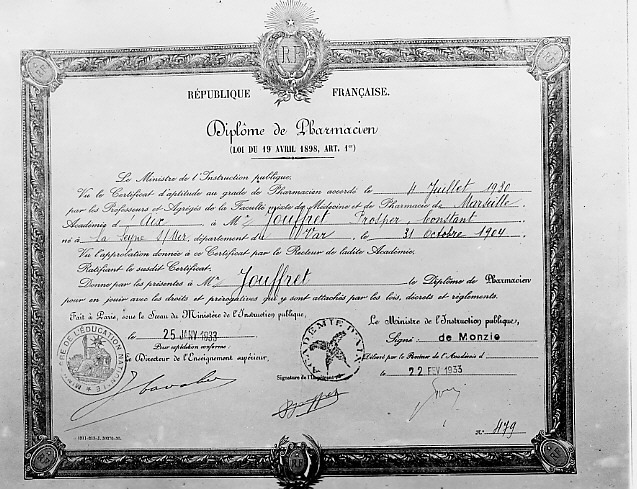 RF
RÉPUBLIQUE FRANÇAISE.
Diplôme de Pharmacien
(LOI DU 19 AVRIL 1898, ART. 1er)
Le Ministre de l'Instruction publique,
Vu le Certificat d'aptitude au grade de Pharmacien accordé le 4 Juillet 1930
par les Professeurs et Agrégés de la Faculté mixte de Médecine et de Pharmacie de Marseille
Académie d'Aix à Mr Jouffret Prosper, Constant
né à La Seyne s/Mer, département du Var, le 31 octobre 1904,
Vu l'approbation donnée à ce Certificat par le Recteur de ladite Académie.
Ratifiant le susdit Certificat.
Donne par les présentes à Mr Jouffret le Diplôme de Pharmacien
pour en jouir avec les droits et prérogatives qui y sont attachés par les lois, décrets et règlements.
Fait à Paris, sous le Sceau du Ministère de l'Instruction publique,
le 25 JANV 1933
Pour expédition conforme:
Le Directeur de l'Enseignement supérieur,
MINISTÈRE DE L'ÉDUCATION NATIONALE
ACADÉMIE D'AIX
Signature de l'Impétrant
Le Ministre de l'Instruction publique,
Signé: de Monzie
Délivré par le Recteur de l'Académie d
le 22 FEV 1933
N° 479